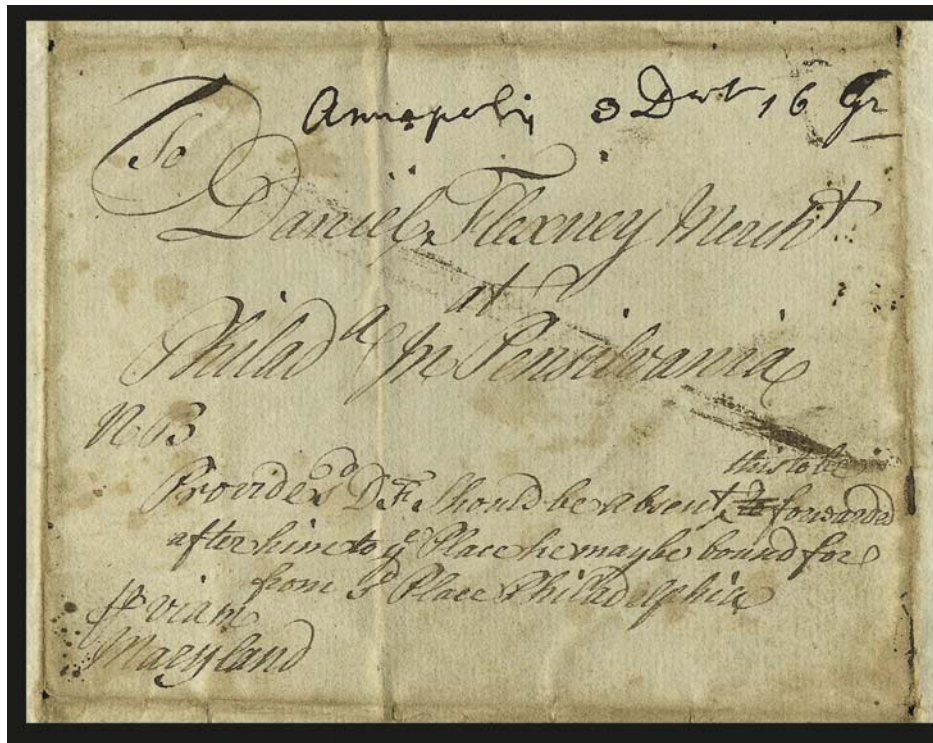 Annapolis 3 Dwt 16 Gr
To
Daniel Flexney Mercht
at
Philada In Pensilvania
NB
this to be
Provided sd D.F. Should be absent to forwarded
after him to ye Place he may be bound for
from sd Place Philadelphia
pr viam
Maryland